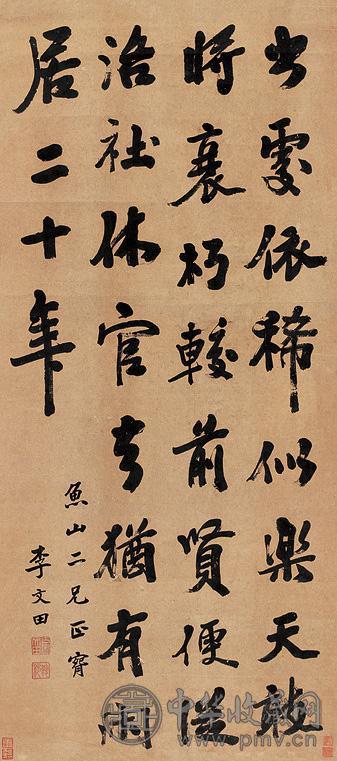 出處依稀似樂天敢
將衰朽較前賢便從
洛社休官去猶有閒
居二十年
魚山二兄正
李文田
中华收藏网
www.pmv.cn